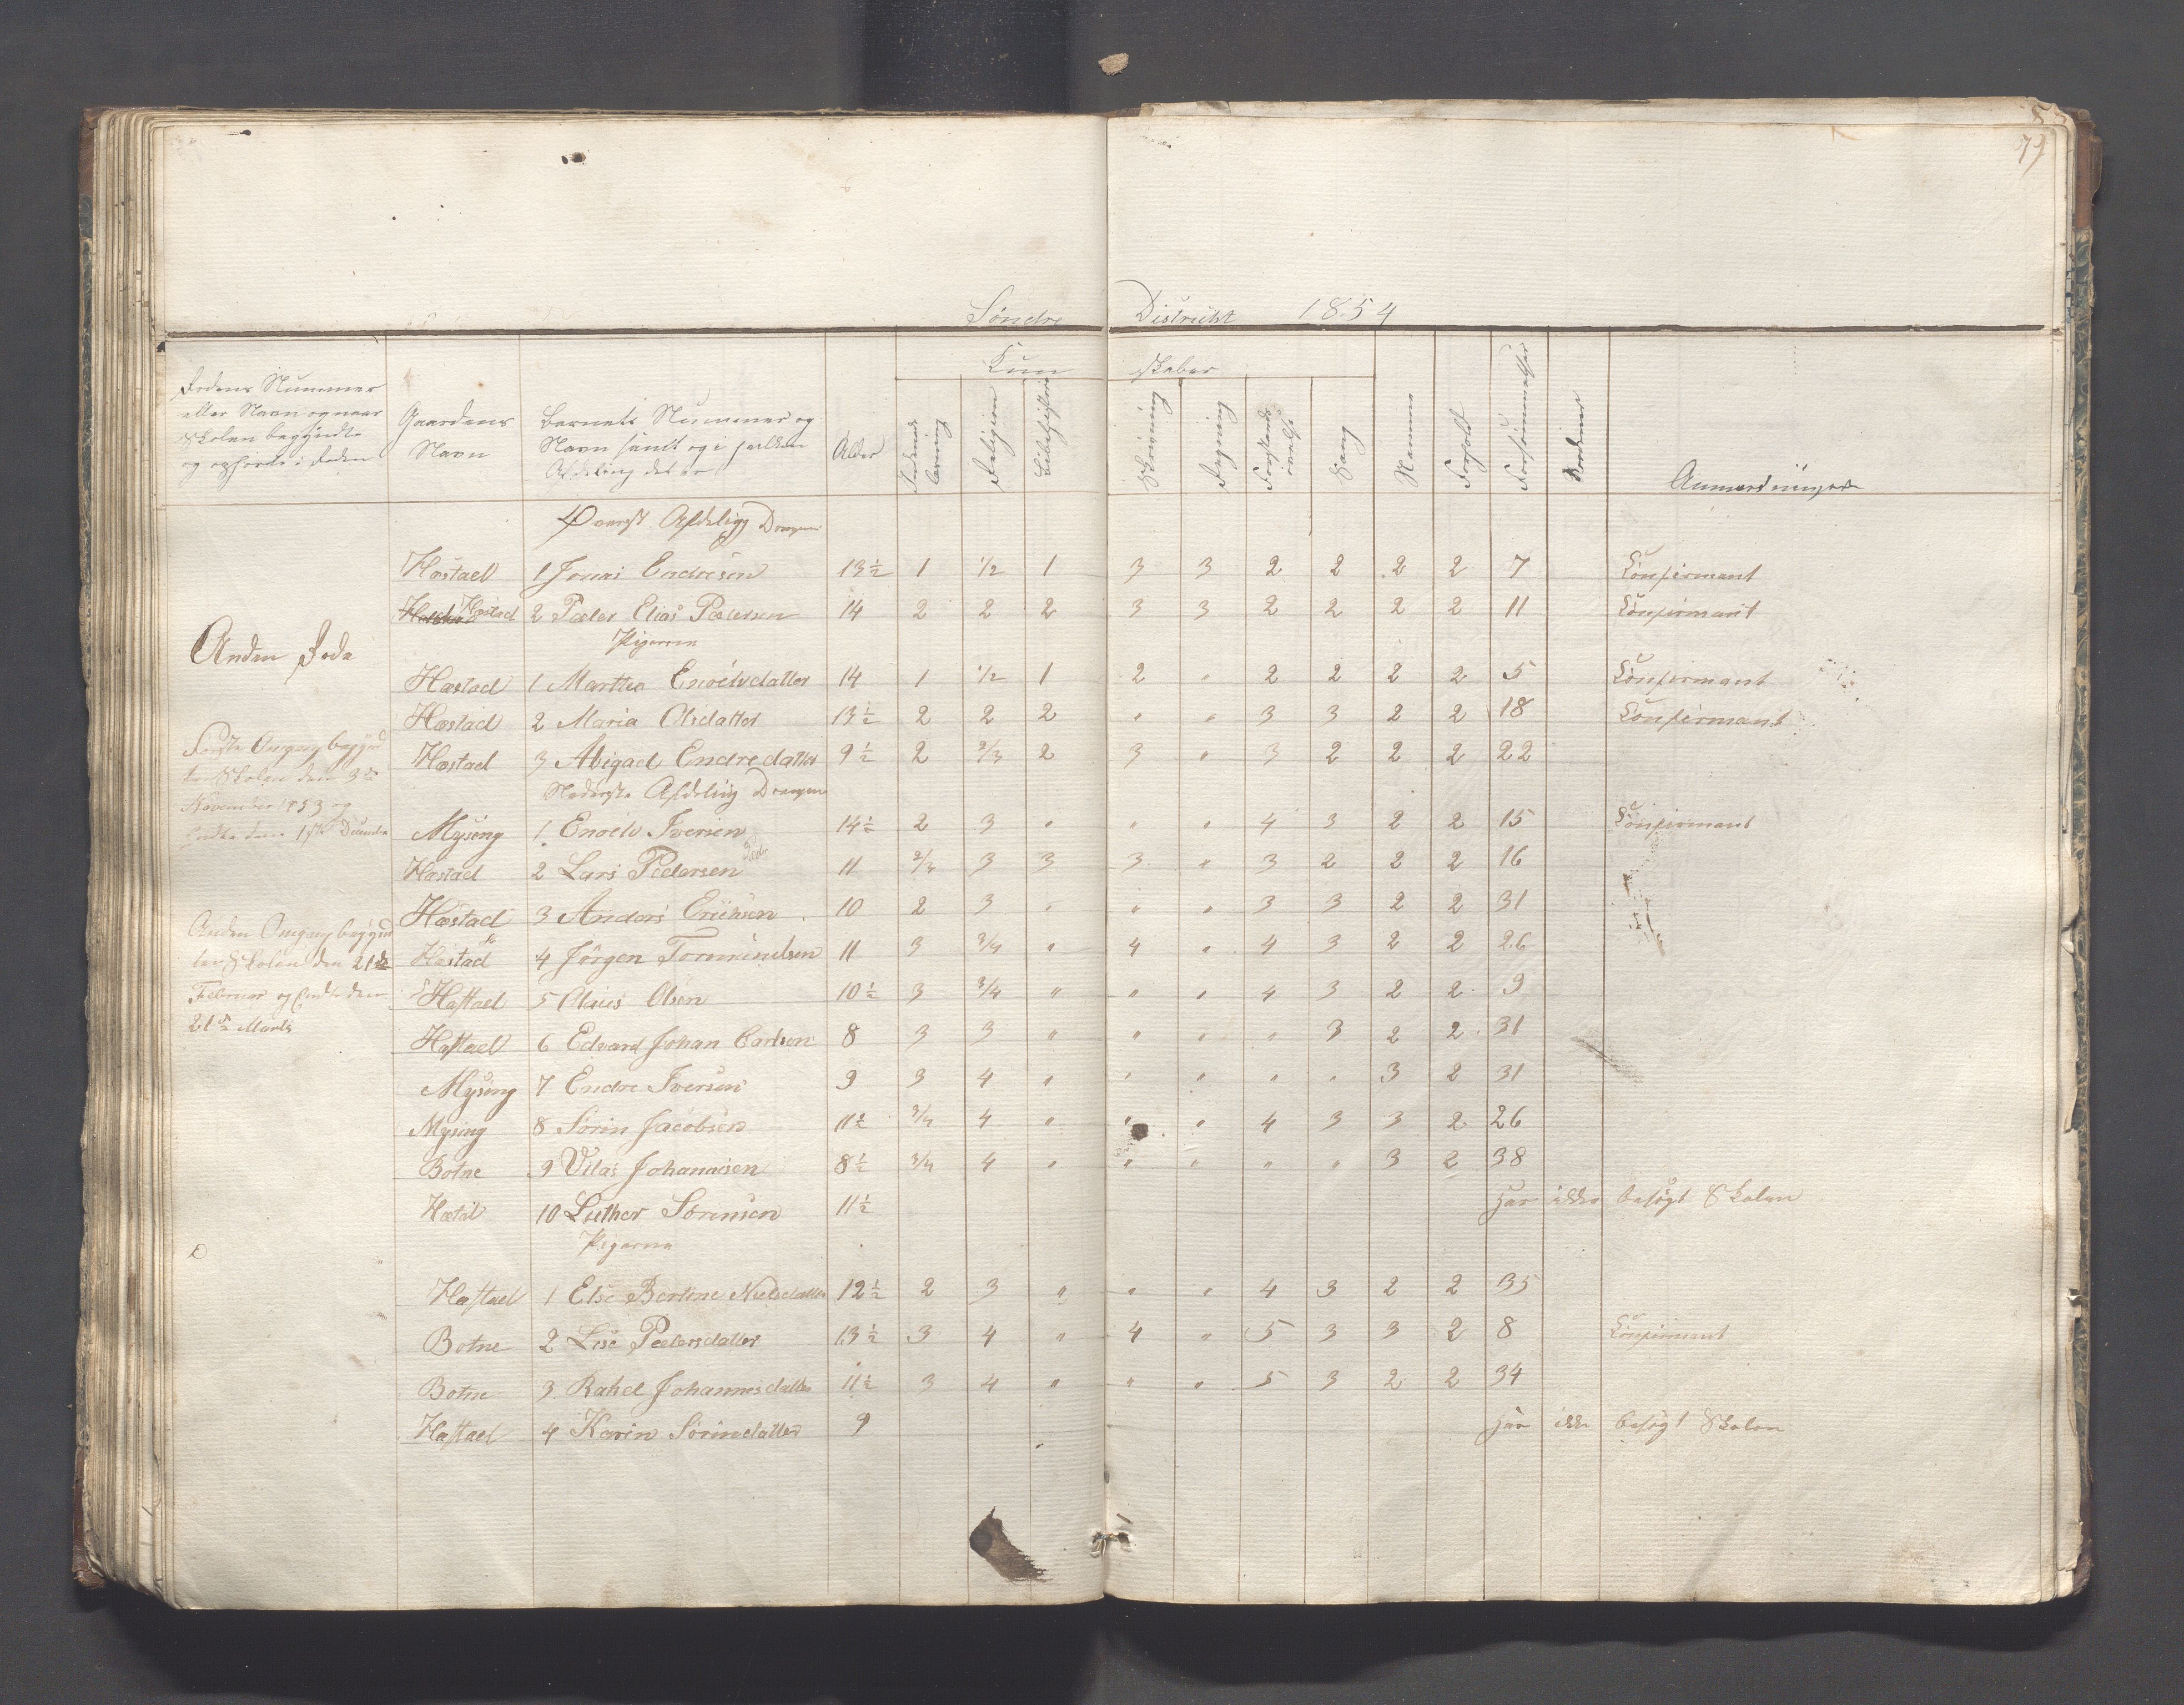 79
Søndre Districkt 1854
Kun skaber
Rodens Nummer
eller Navn og naar
Skolen begyndte
og ophørte i Roden
Gaardens
Navn
Barnets Nummer og
Navn samt og i hvilken
Afdeling det er
Alder
Indenad
læsning
Religion
Bibelhistorie
Skrivning
Regning
Forstands
øvelse
Sang
Nemme
Forhold
Forsømmelser
Anmærkninger
Øverst Afdeling Drenge
Hæstad 1 Jonas Endresen 13½ 1 1/2 1 3 3 2 2 2 2 7 Confirmant
Hæstad 2 Peder Elias Pedersen 14 2 2 2 3 3 2 2 2 2 11 Confirmant
Pigerne
Anden Rode
Hæstad 1 Marthea Enochsdatter 14 1 1/2 1 2 " 2 2 2 2 5 Confirmant
Hæstad 2 Maria Olsdatter 13½ 2 2 2 " " 3 3 2 2 18 Confirmant
Hæstad 3 Abigael Endredatter 9½ 2 2/3 2 3 " 3 2 2 2 22
Første Omgang begynd
te Skolen den 3de
November 1853 og
Endte den
Nederste Afdeling Drenge
Mysing 1 Enoch Iversen 14½ 2 3 " " " 4 3 2 2 15 Confirmant
Hæstad 2 Lars Pedersen 11 3 3 3 " 3 2 2 2 16
Hæstad 3 Anders Erichsen 10 2 3 " " " 3 3 2 2 31
Anden Omgang begynd
te Skolen den 21de
Februar og Endte den
21de Marts
Hæstad 4 Jørgen Tormundsen 11 3 3/4 " 4 " 4 3 2 2 26
Hæstad 5 Olaus Olsen 10½ 3 3/4 " " " 4 3 2 2 9
Hæstad 6 Edvard Johan Carlsen 8 3 3 " " " " 3 2 2 31
Mysing 7 Endre Iversen 9 3 4 " " " " " 3 2 31
Mysing 8 Sørin Jacobsen 11½ 3/4 4 " " " 4 3 3 2 26
Botne 9 Vilas Johannsen 8½ 3/4 4 " " " " " 3 2 38
Hæstad 10 Luther Sørensen 11½ har ikke besøgt Skolen
Pigerne
Hæstad 1 Else Bertine Nielsdatter 12½ 2 3 " " " 4 3 2 2 35
Botne 2 Lise Pedersdatter 13½ 3 4 " 4 " 5 3 3 2 8 Confirmant
Botne 3 Rahel Johannesdatter 11½ 3 4 " " " 5 3 2 2 34
Hæstad 4 Karin Sørinsdatter 9 har ikke besøgt Skolen